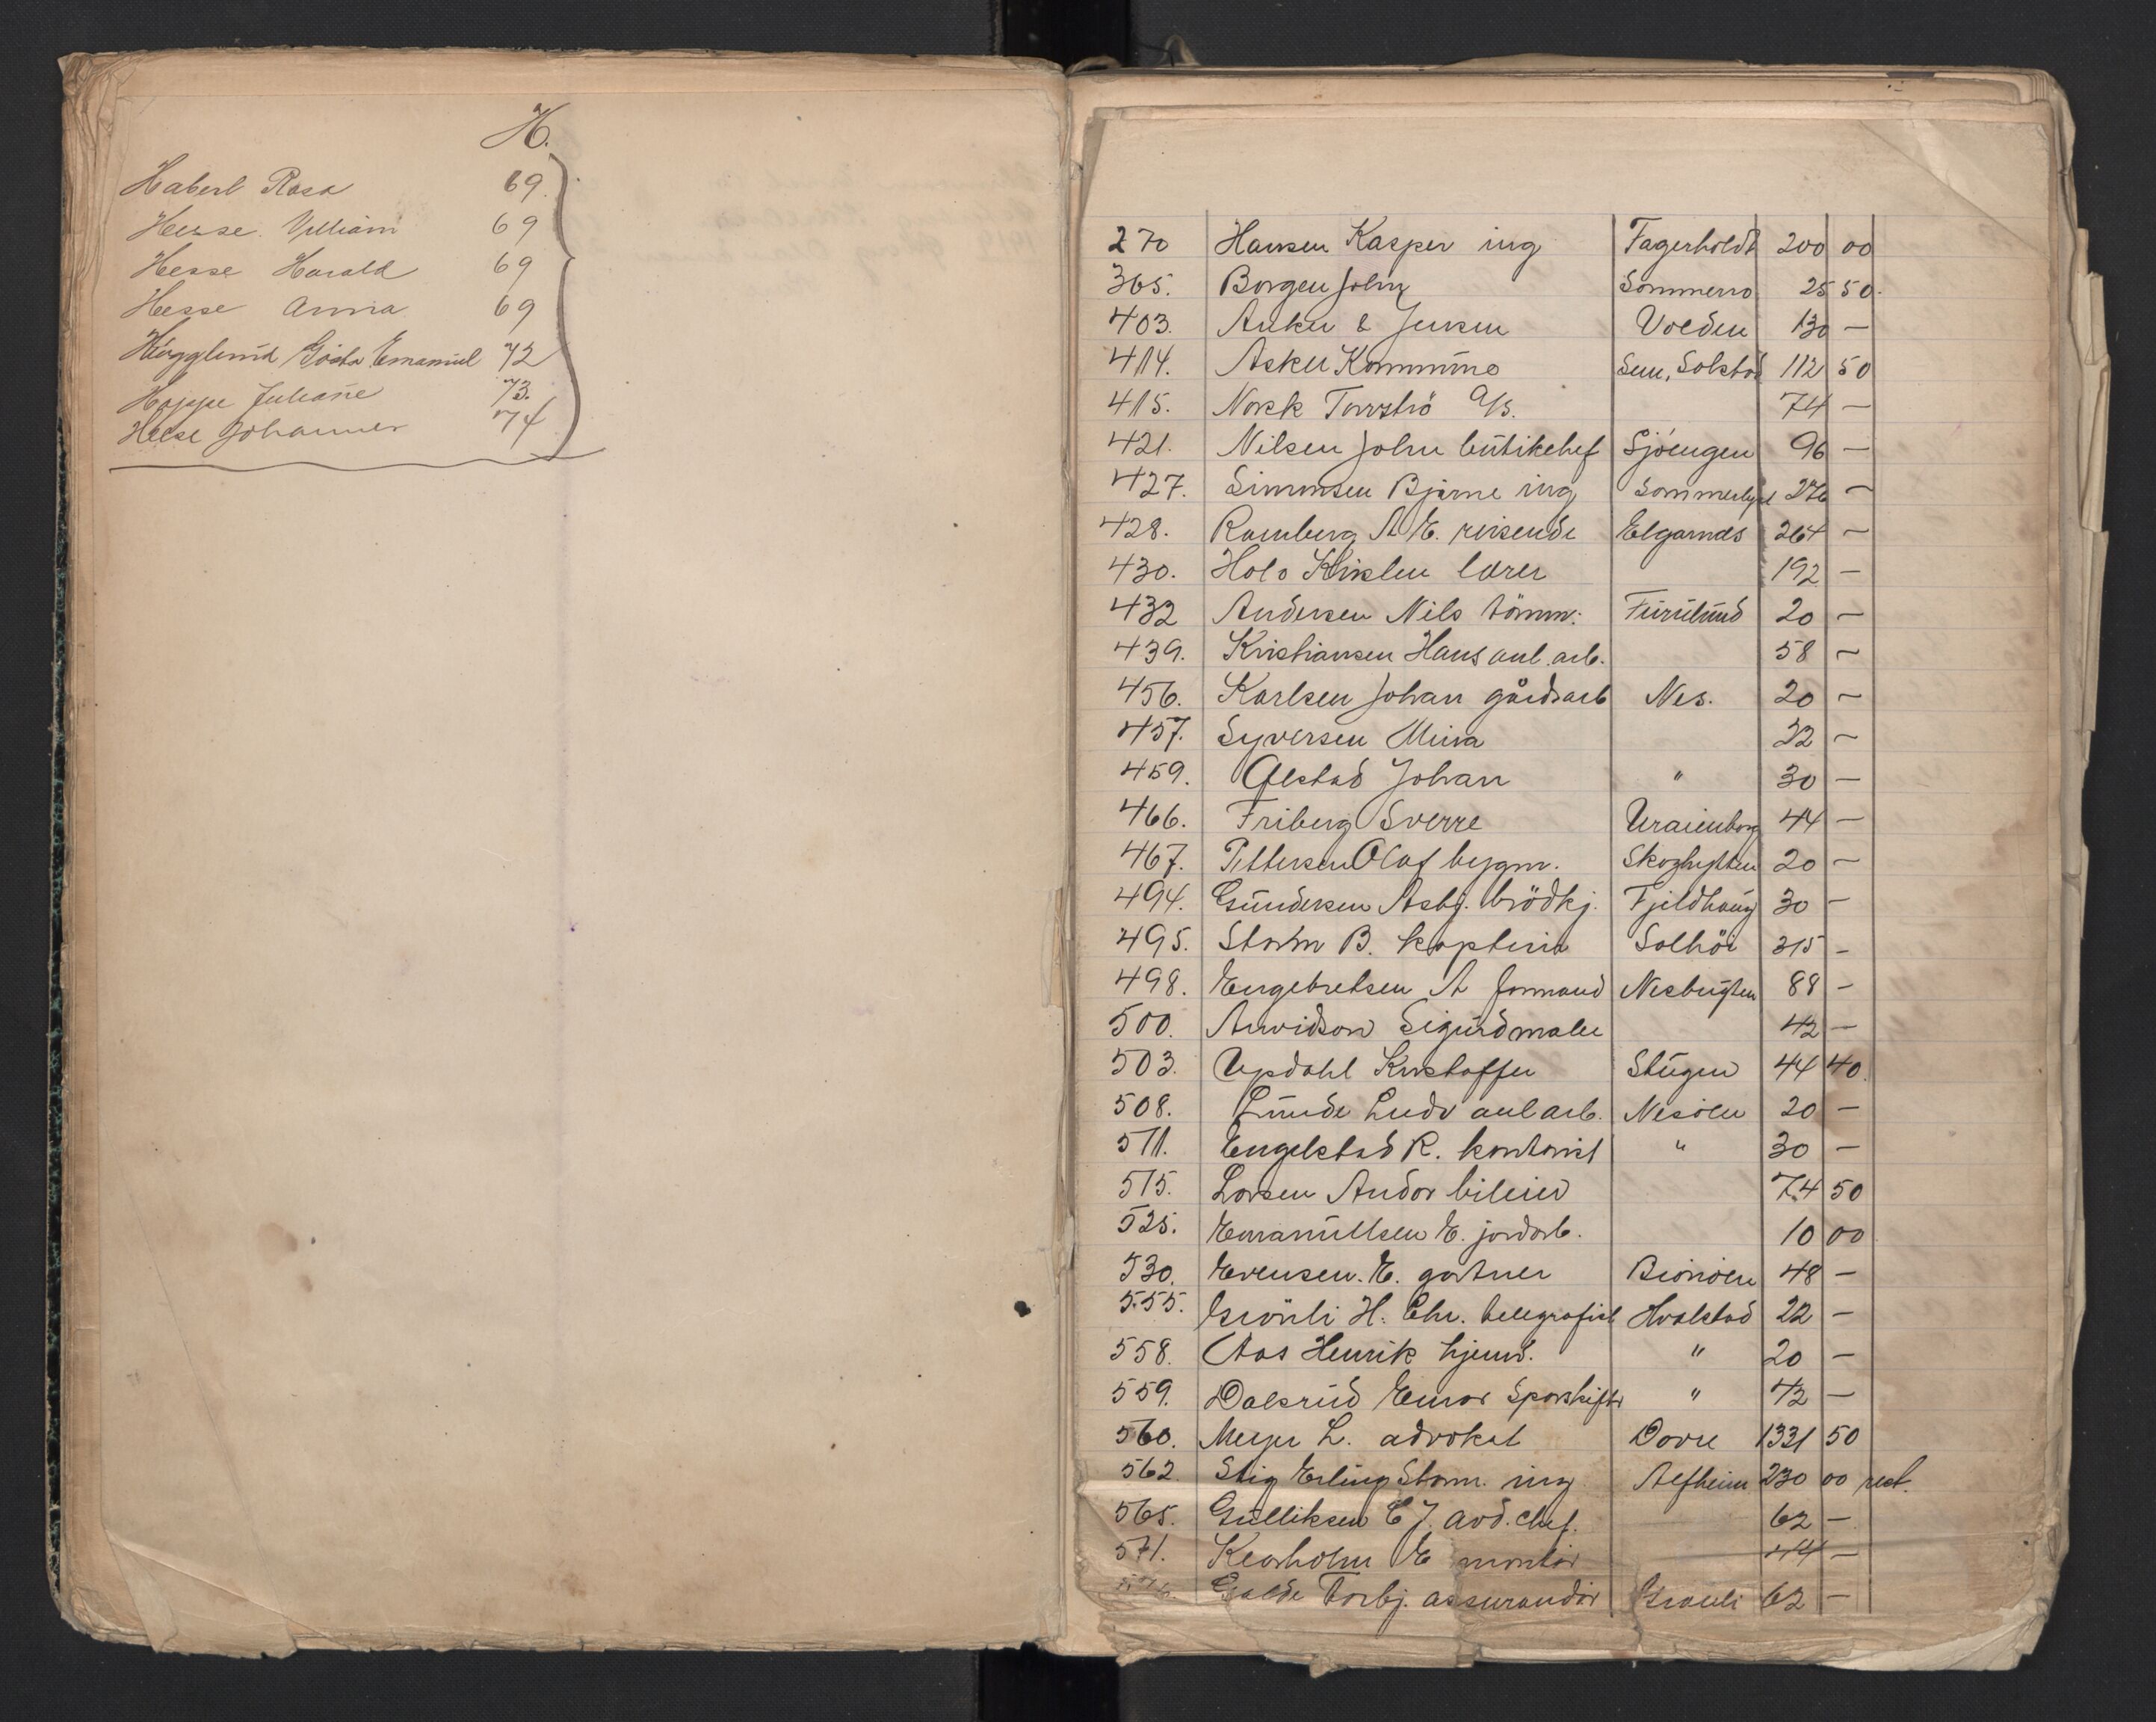 H.
Haberl Rosa 69.
Hesse Villiam 69
Hesse Harald 69
Hesse Anna 69
Hägglund Gösta Emanuel 72
Hoppe Juliane 73.
Hesse Johannes 74
270 Hansen Kasper ing Fagerholdt 200 00
365. Borgen John Sommerro 25 50.
403. Anker & Jensen Volden 130 —
414. Asker Kommune Sem, Solstad 112 50
415. Norsk Torvströ A/S. 74 —
421. Nilsen John butikchef Sjöengen 96 —
427. Simonsen Bjarne ing 276 —
428. Ramberg A E. reisende Elgarnes 264 —
430. Holo Kristen lærer 192 —
432 Andersen Nils tömm: Furulund 20 —
439. Kristiansen Hans anl. arb. 58 —
456. Karlsen Johan gårdsarb Nes. 20 —
457. Syversen Mina 22 —
459. Ølstad Johan " 30 —
466. Friberg Sverre Uranienborg 44 —
467. Pettersen Olaf bygm. Skoghytten 20 —
494. Gundersen Asbj. brödkj. Fjeldhaug 30 —
495. Storm B. kaptein Solhöi 315 —
498. Engebretsen A formand Nesbugten 88 —
500. Arvidson Sigurd maler 42 —
503. Updahl Kristoffer Stugen 44 40.
508. Lunde Ludv anl arb. Nesöen 20 —
511. Engelstad R. kontorist " 30 —
515. Larsen Andor bileier 74 50
525. Emanuelsen E. jordarb. 10 00
530. Evensen. E. gartner Brönöen 48 —
555. Grönli H. Chr. telegrafist Hvalstad 22 —
558. Aas Henrik hjemv. " 20 —
559. Dalsrud Einar Sporskifter " 42 —
560. Meyer L. advokat Dovre 1331 50
562. Stig Erling Storm. ing Alfheim 230 00 rest.
565. Gulliksen E J. avd. chef. 62 —
571. E montör 44 —
Galde Torbj. assurandör Granli 62 —